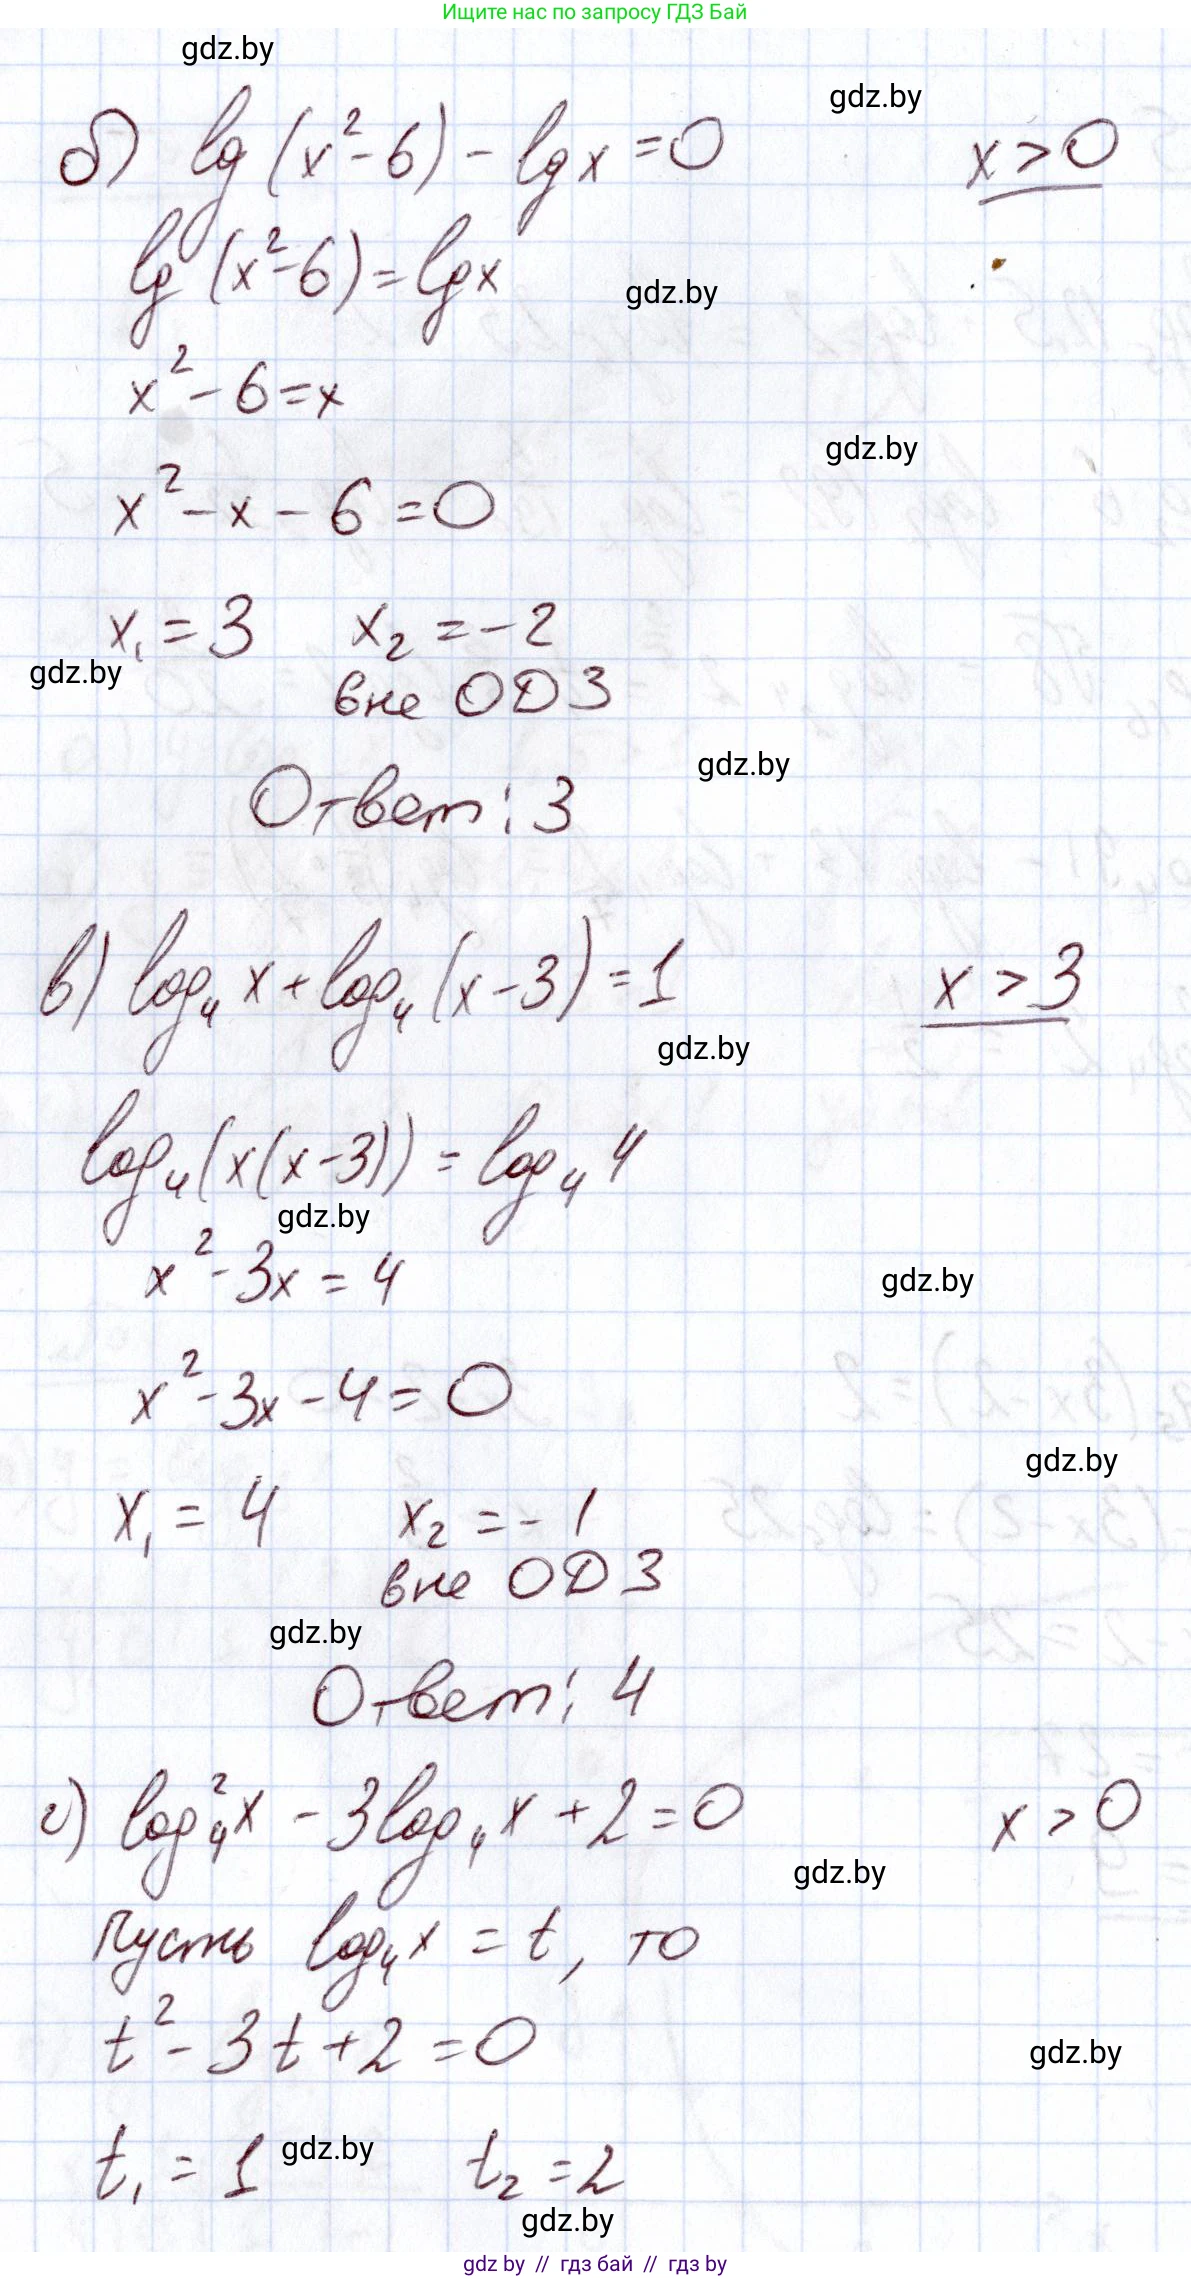 Ищите нас по запросу ГДЗ Бай
gdz.by
gdz.by
б) lg(x²-6) - lgx = 0 x > 0
lg(x²-6) = lgx
gdz.by
x² - 6 = x
gdz.by
x² - x - 6 = 0
x₁ = 3 x₂ = -2
gdz.by
вне ОДЗ
gdz.by
Ответ: 3
в) log₄ x + log₄ (x-3) = 1 x > 3
gdz.by
log₄(x(x-3)) = log₄ 4
gdz.by
x² - 3x = 4
gdz.by
x² - 3x - 4 = 0
gdz.by
x₁ = 4 x₂ = -1
вне ОДЗ
gdz.by
Ответ: 4
г) log₄²x - 3log₄ x + 2 = 0 x > 0
gdz.by
Пусть log₄x = t, то
t² - 3t + 2 = 0
gdz.by
t₁ = 1 t₂ = 2
gdz.by
gdz.by
gdz by // гдз бай // гдз by